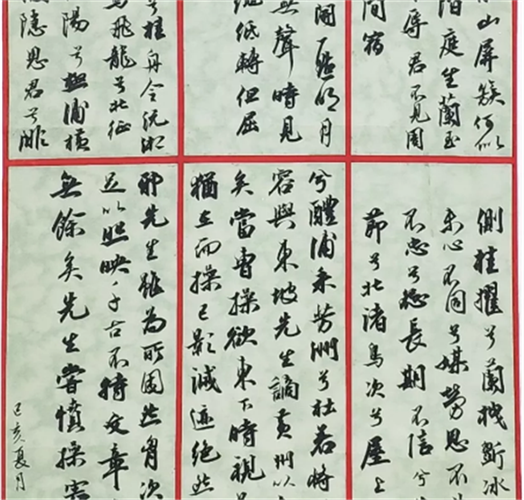 山屏簇何似
階庭生蘭玉
君不見周
間宿
明月
無聲時見
低轉但屈
兮桂舟令沅湘
飛龍兮北征
陽兮極浦橫
隱思君兮陫
側桂擢兮蘭枻斲冰
末心不同兮媒勞恩不
不忠兮怨長期不信兮
節兮北渚鳥次兮屋上
兮醴浦采芳洲兮杜若將
容與東坡先生謫黃州以
矣當曹操欲東下時視
猶在而操已影滅迹絕此
邪先生雖為所困然胷次
足以照映千古不特文章
無餘矣先生嘗慎操害
己亥夏月